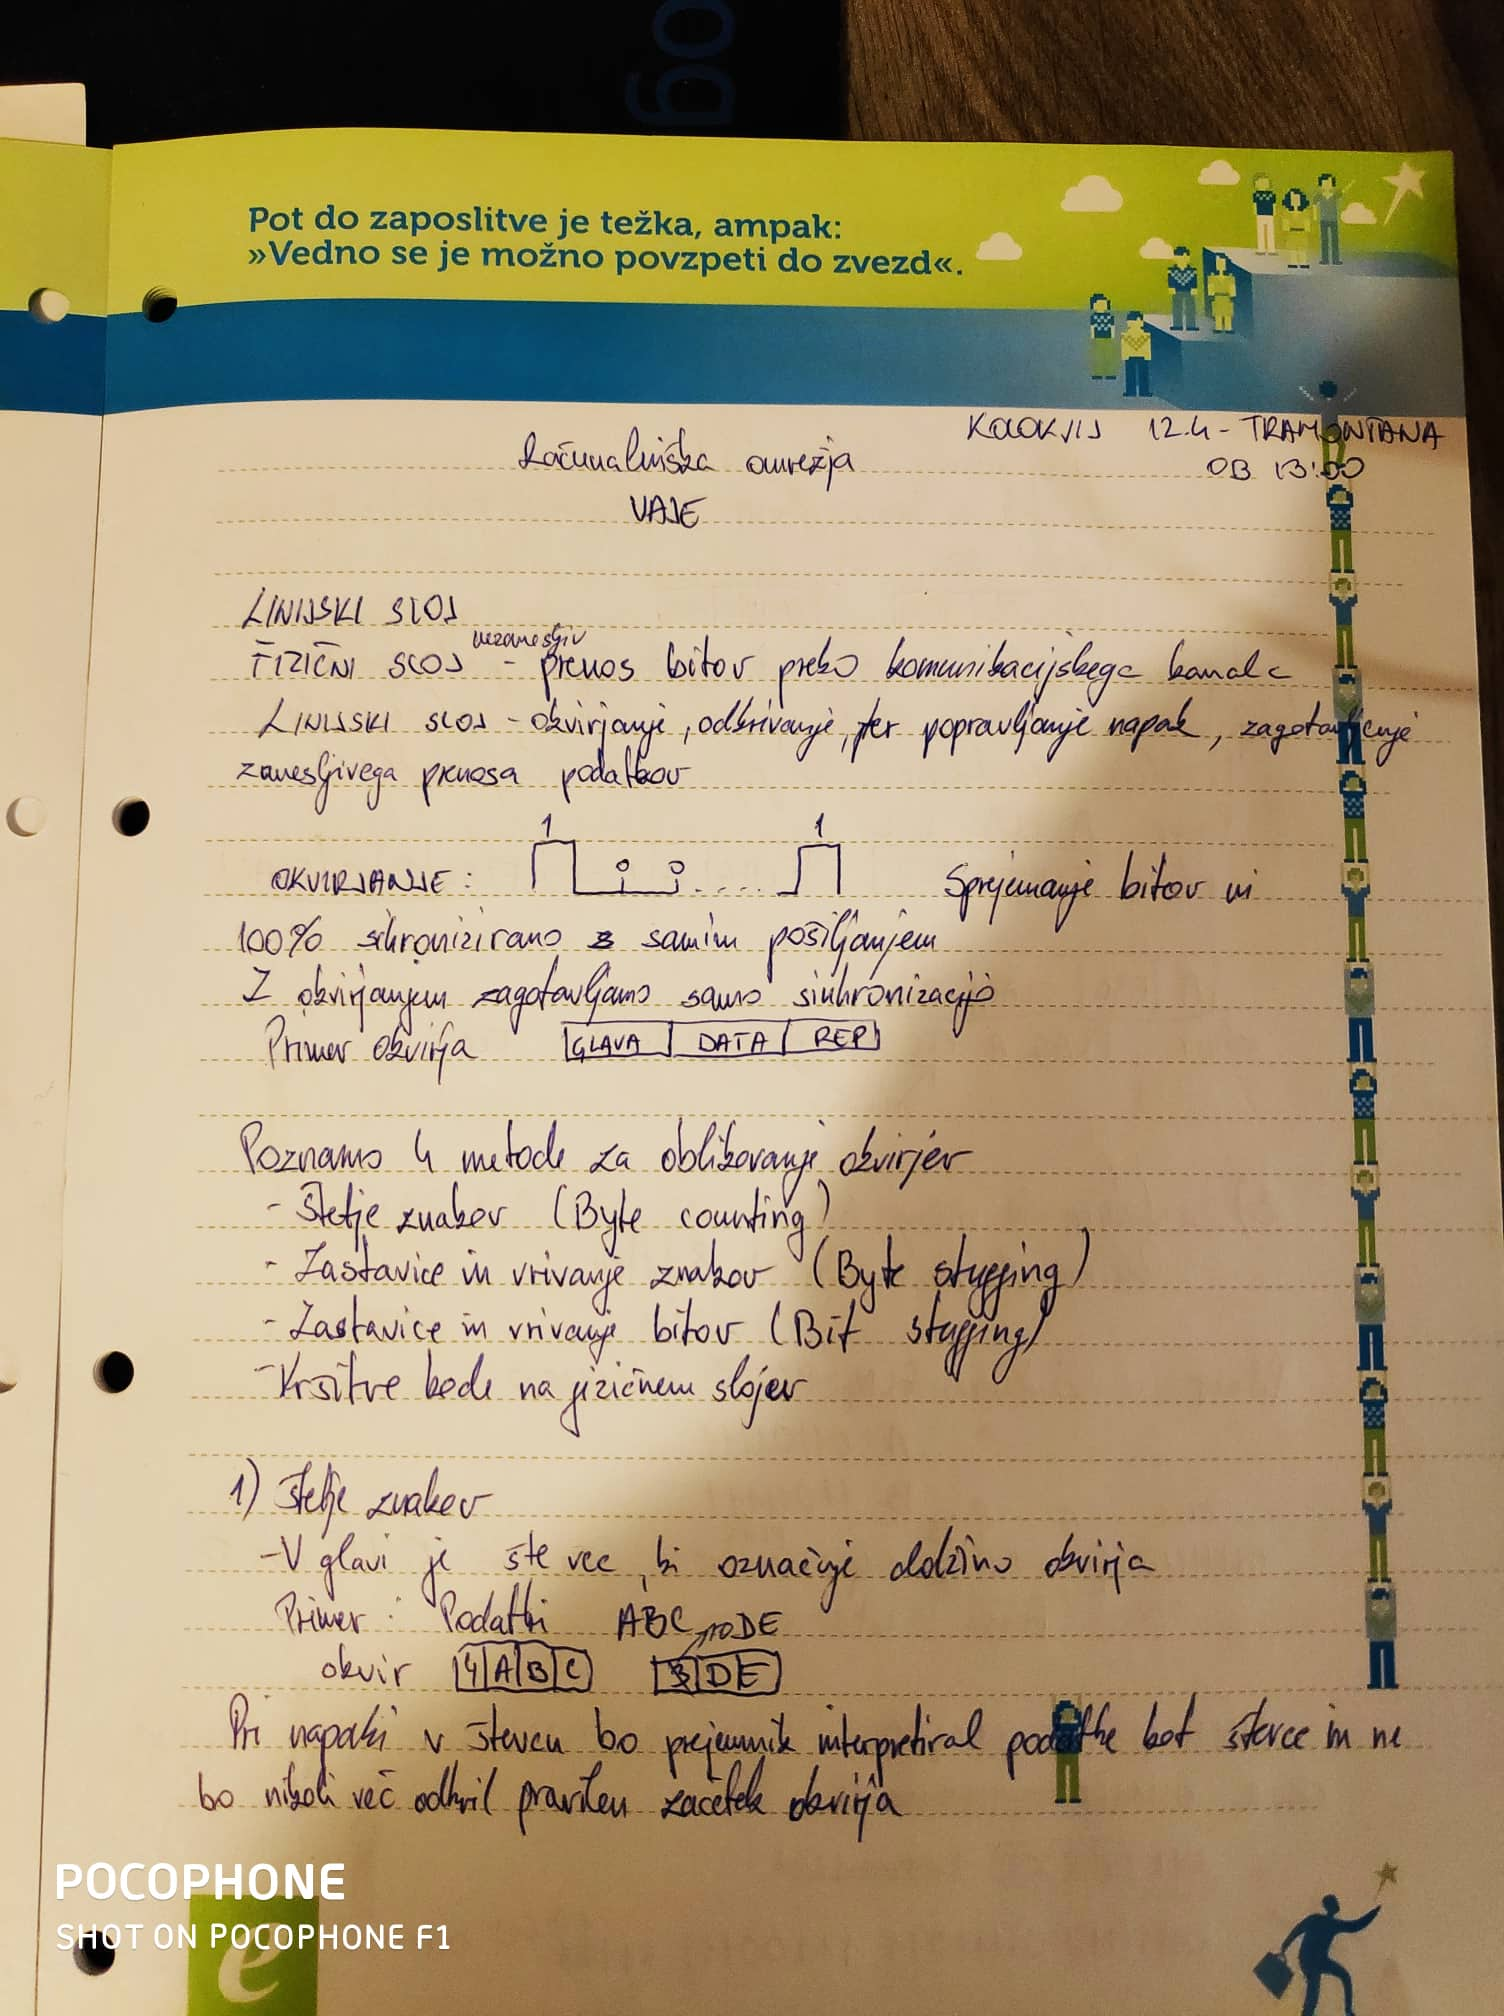 og
Pot do zaposlitve je težka, ampak:
»Vedno se je možno povzpeti do zvezd«.
KOLOKVIJ 12.4 - TRAMONTANA
OB 13:00
Računalniška omrežja
VAJE
LINIJSKI SLOJ
nezanesljiv
FIZIČNI SLOJ - prenos bitov preko komunikacijskega kanala
LINIJSKI SLOJ - okvirjanje, odkrivanje, ter popravljanje napak, zagotavljanje
zanesljivega prenosa podatkov
1 1
OKVIRJANJE: 0 0 .... Sprejemanje bitov ni
100% sihronizirano s samim pošiljanjem
Z okvirjanjem zagotavljamo samo sinhronizacijo
Primer okvirja GLAVA DATA REP
Poznamo 4 metode za oblikovanje okvirjev
- štetje znakov (Byte counting)
- Zastavice in vrivanje znakov (Byte stuffing)
- Zastavice in vrivanje bitov (Bit stuffing)
- Kršitve kode na fizičnem slojev
1) štetje znakov
- V glavi je števec, ki označuje dolžino okvirja
Primer: Podatki ABC DE
okvir 4 A B C 3 D E
Pri napaki v števcu bo prejemnik interpretiral podatke kot števce in ne
bo nikoli več odkril pravilen začetek okvirja
POCOPHONE
SHOT ON POCOPHONE F1
e